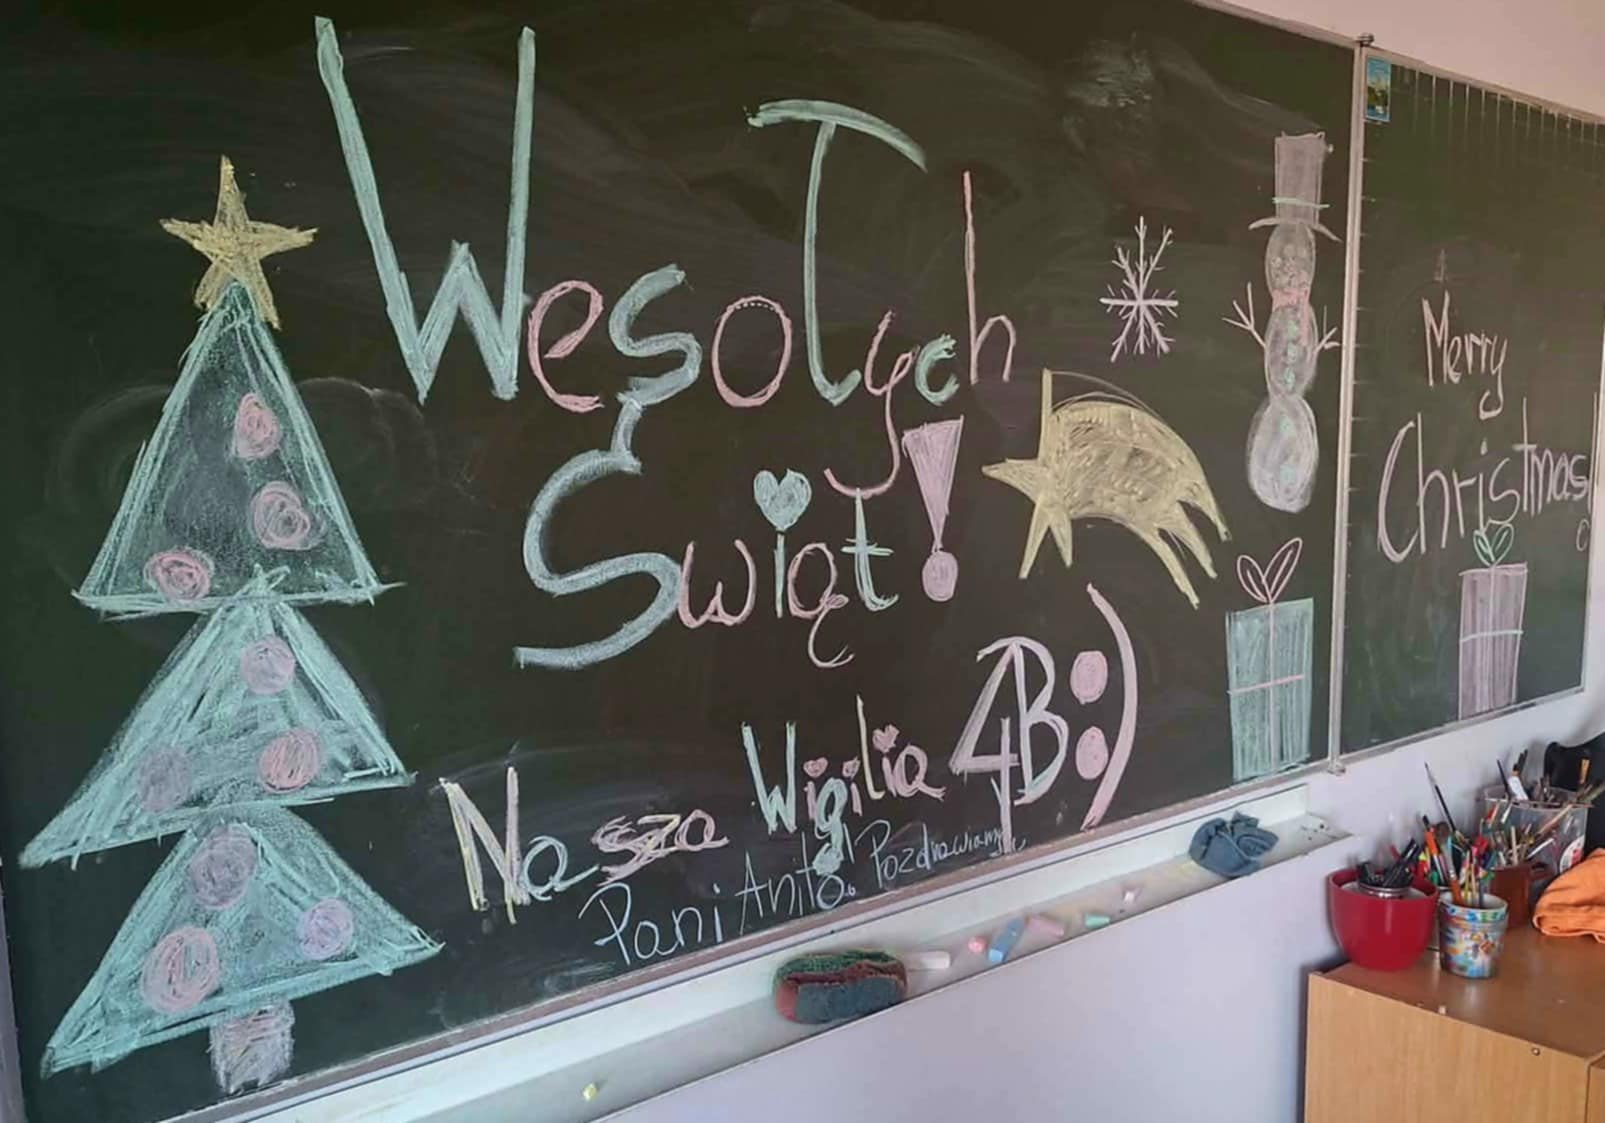 Wesołych
Świąt!
Nasza Wigilia 4B:)
Pani Anita. Pozdrawiamy
Merry
Christmas